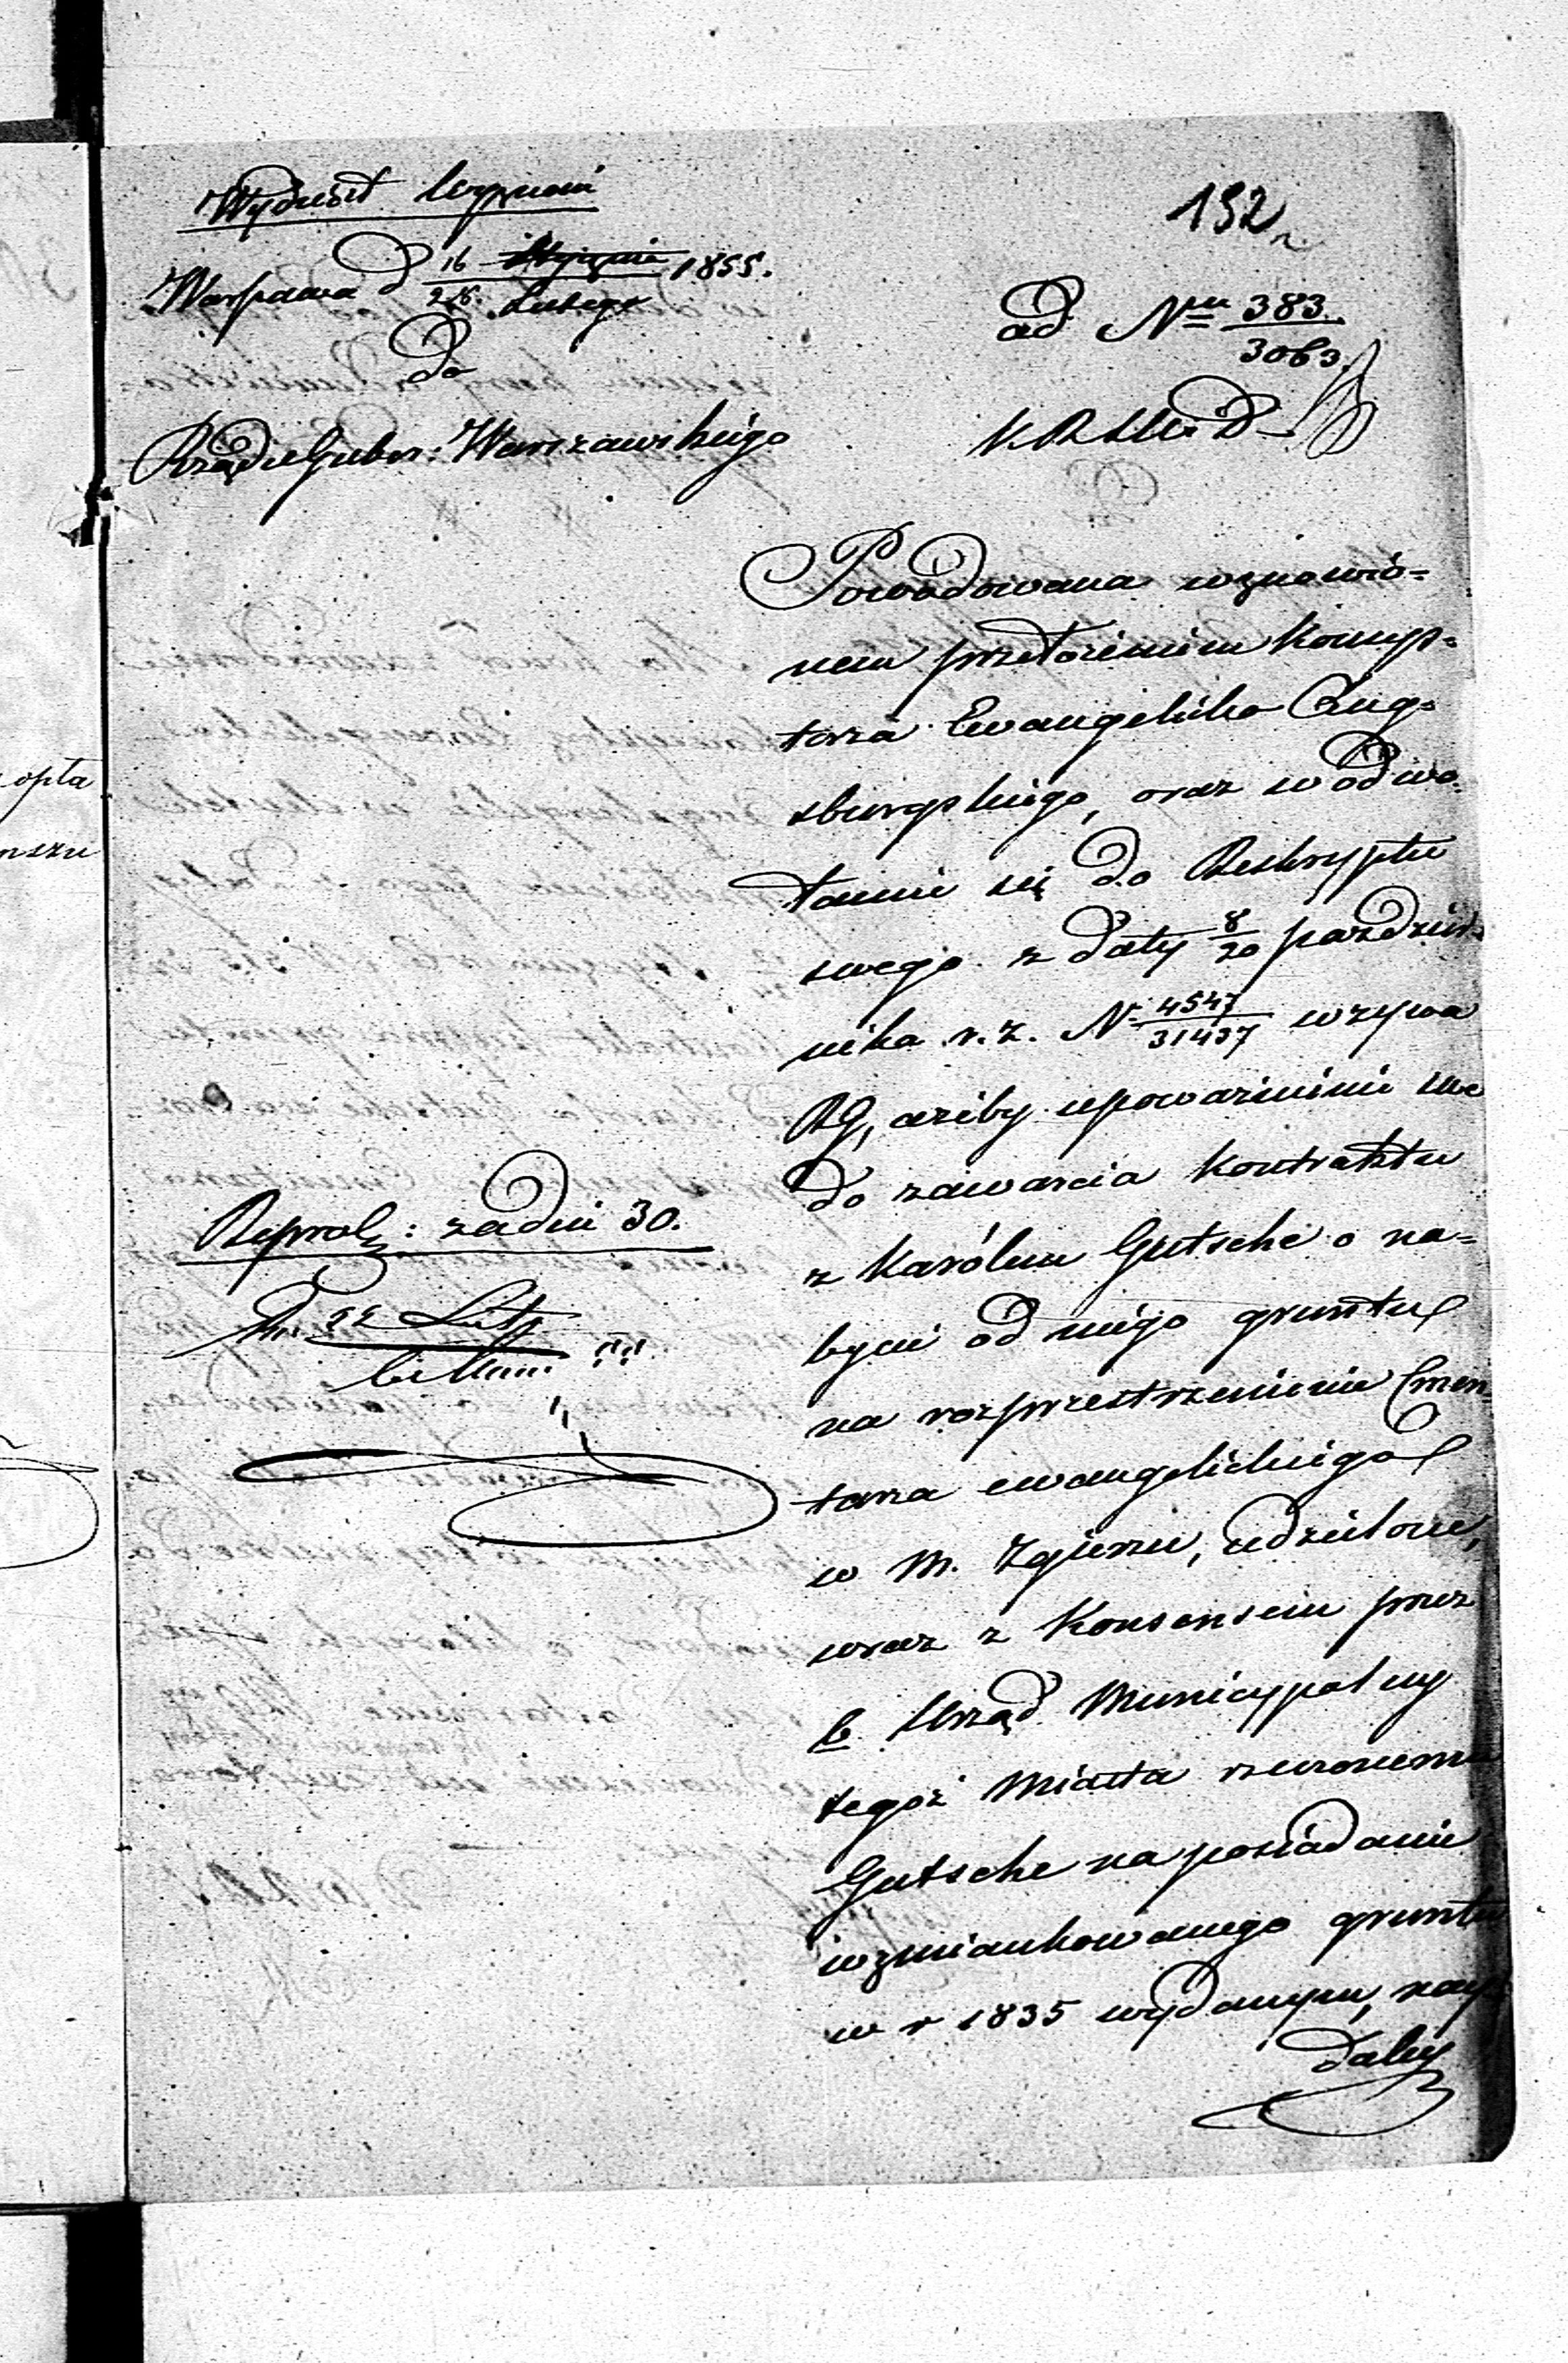 Wydział Wyznań
Warszawa d 16 Stycznia 1855.
28. Lutego
do
Rządu Guber: Warszawskiego
192
ad Nru 383
3063
K R S W i D
Powodowana wznowio=
nem przełożeniem Konsys=
torza Ewangelicko Aug=
sburgskiego, oraz w odwo=
łaniu się do Reskryptu
swego z daty 8/20 paździer=
nika r. z. N 4547/31437 wzywa
RG, ażeby upoważnienie swe
do zawarcia Kontraktu
z Karólem Gutsche o na=
bycie od niego gruntu
na rozprzestrzenienie Cmen=
tarza ewangelickiego
w M. Zgierzu, udzielone,
wraz z Konsensem przez
b. Urząd Municypalny
tegoż Miasta rzeczonemu
Gutsche na posiadanie
wzmiankowanego gruntu
w r 1835 wydanym, nay
daley
Reprod: za dni 30.
opła
nszu